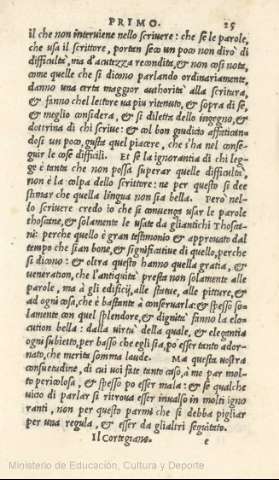 PRIMO. 25
il che non interuiene nello scriuere: che se le parole,
che usa il scrittore, portan seco un poco non dirò di
difficultà, ma d'acutezza recondita, & non cosi nota,
come quelle che si dicono parlando ordinariamente,
danno una certa maggior authorità alla scrittura,
& fanno che'l lettore ua piu ritenuto, & sopra di se,
& meglio considera, & si diletta dello ingegno, &
dottrina di chi scriue: & col bon giudicio affatican-
dosi un poco, gusta quel piacere, che s'ha nel conse-
guir le cose difficili. Et se la ignorantia di chi leg-
ge è tanta che non possa superar quelle difficultà,
non è la colpa dello scrittore: ne per questo si dee
stimar che quella lingua non sia bella. Però nel-
lo scriuere credo io che si conuenga usar le parole
thoscane, & solamente le usate da gli antichi Thosca-
ni: perche quello è gran testimonio & approuato dal
tempo che sian bone, & significatiue di quello, perche
si dicono: & oltra questo hanno quella gratia, &
ueneration, che l'antiquità presta non solamente alle
parole, ma à gli edificij, alle statue, alle pitture, & ad
ogni cosa, che è bastante à conseruarla: & spesso so-
lamente con quel splendore, & dignità fanno la elo-
cution bella: dalla uirtù della quale, & elegantia
ogni subietto, per basso che egli sia, po esser tanto ador-
nato, che merita somma laude. Ma questa uostra
consuetudine, di cui uoi fate tanto caso, à me par mol-
to pericolosa, & spesso po esser mala: & se qualche
uicio di parlar si ritroua esser inualso in molti igno
ranti, non per questo parmi che si debba pigliar
per una regula, & esser da gli altri seguitato.
Il Cortegiano. e
Ministerio de Educación, Cultura y Deporte